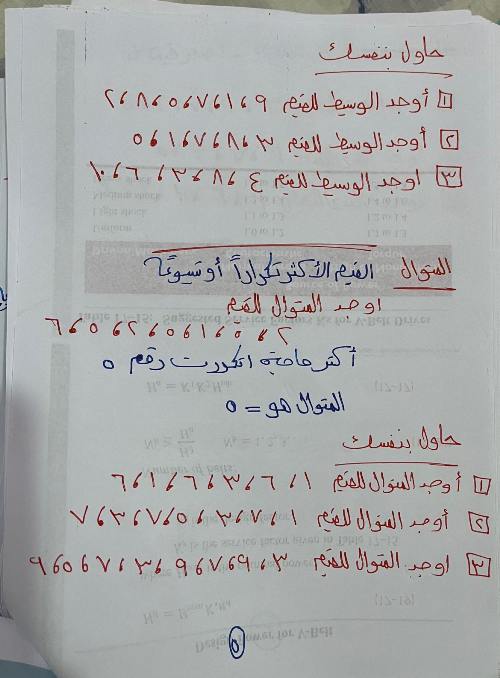 حاول بنفسك
١ أوجد الوسيط للقيم ٩ ، ١ ، ٧ ، ٥ ، ٨ ، ٢
٢ أوجد الوسيط للقيم ٣ ، ٨ ، ٧ ، ١ ، ٥
٣ اوجد الوسيط للقيم ٤ ، ٨ ، ٣ ، ٦ ، ١٠
المنوال القيم الأكثر تكراراً أو شيوعاً
اوجد المنوال للقيم
٢ ، ٥ ، ١ ، ٥ ، ٢ ، ٥ ، ٦
أكثر حاجة اتكررت رقم ٥
المنوال هو = ٥
حاول بنفسك
١ أوجد المنوال للقيم ١ ، ٦ ، ٣ ، ٦ ، ١ ، ٦
٢ أوجد المنوال للقيم ١ ، ٧ ، ٣ ، ٥ ، ٧ ، ٣ ، ٧
٣ اوجد المنوال للقيم ٣ ، ٩ ، ٧ ، ٩ ، ٣ ، ٧ ، ٥ ، ٩
٥